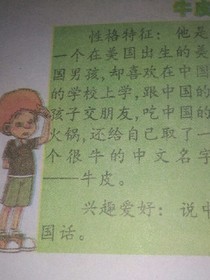 牛皮
性格特征：他是
一个在美国出生的美
国男孩，却喜欢在中国
的学校上学，跟中国的
孩子交朋友，吃中国的
火锅，还给自己取了一
个很牛的中文名字
——牛皮。
兴趣爱好：说中
国话。